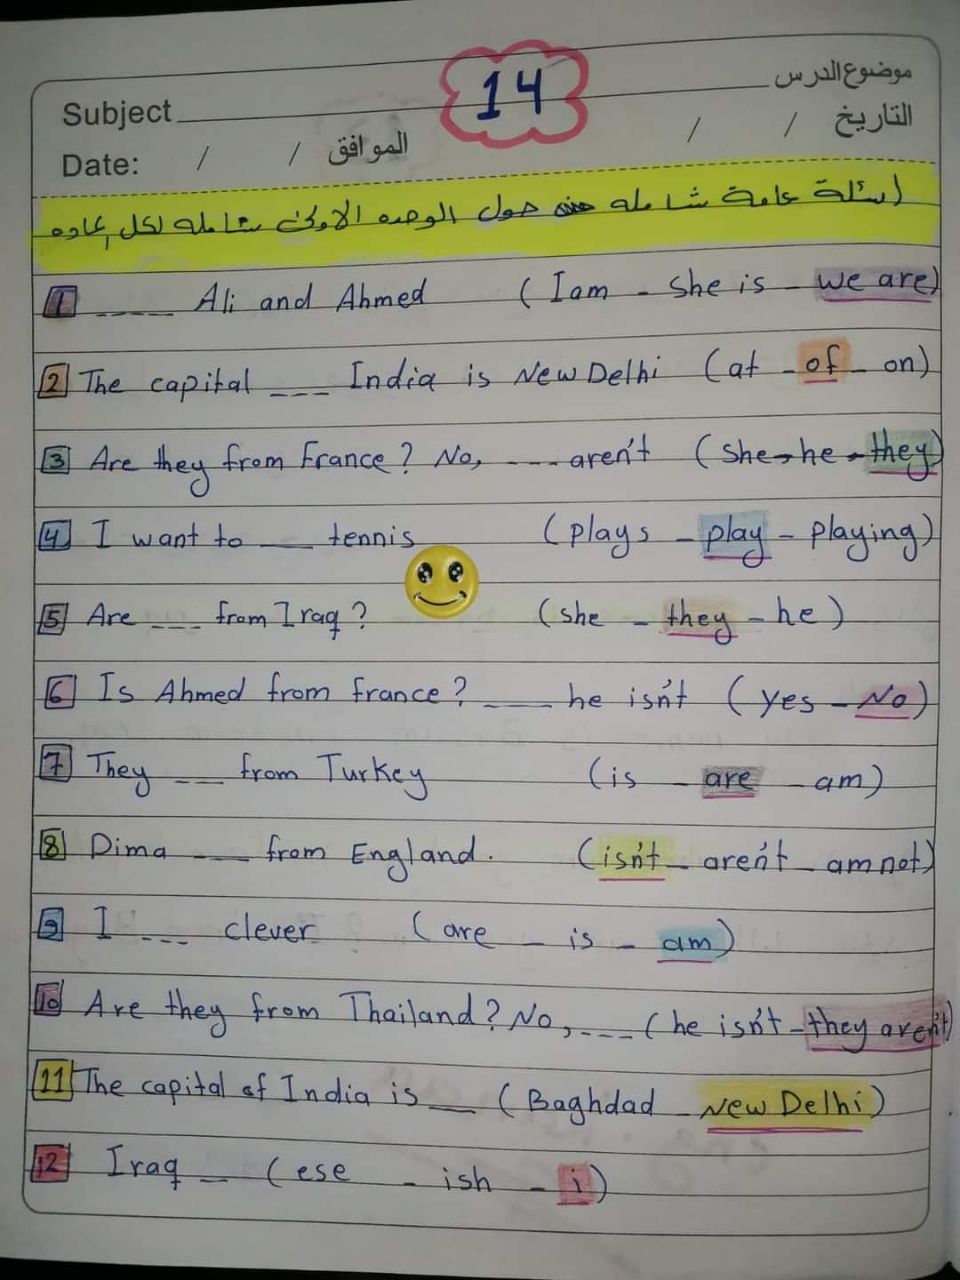 موضوع الدرس
14
Subject
التاريخ / / الموافق / / Date:
اسئلة عامة شامله حول الوحده الاولى شامله لكل ماده
1 ____ Ali and Ahmed ( I am - she is - we are)
2 The capital ___ India is New Delhi (at - of - on)
3 Are they from France? No, ___ aren't (she - he - they)
4 I want to ___ tennis (plays - play - playing)
5 Are ___ from Iraq? (she - they - he)
6 Is Ahmed from france? ___ he isn't (yes - No)
7 They ___ from Turkey (is - are - am)
8 Dima ___ from England. (isn't - aren't - am not)
9 I ___ clever (are - is - am)
10 Are they from Thailand? No, ___ (he isn't - they aren't)
11 The capital of India is ___ (Baghdad - New Delhi)
12 Iraq __ (ese - ish - i)